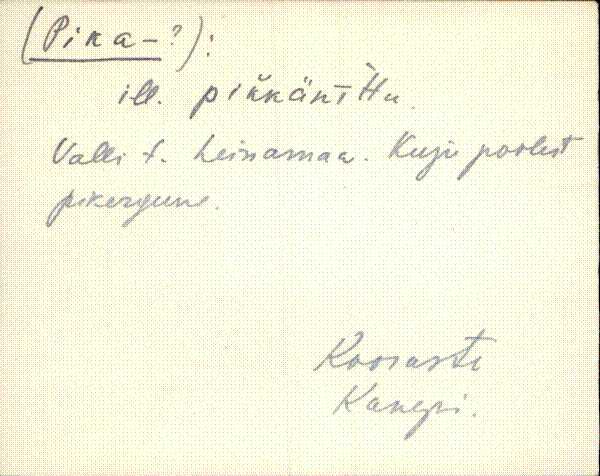 (Pika-?):
ill. pikkänittu.
Valli t. heinamaa. Kuju poolest
pikergune.
Kooraste
Kanepi.